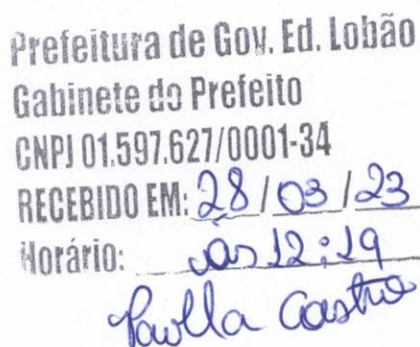 Prefeitura de Gov. Ed. Lobão
Gabinete do Prefeito
CNPJ 01.597.627/0001-34
RECEBIDO EM: 28/03/23
Horário: às 12:19
Paulla Castro